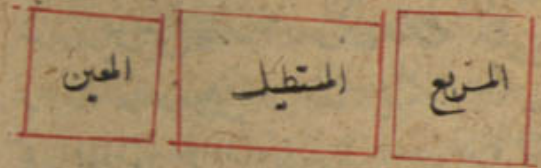 المربع المستطيل المعين